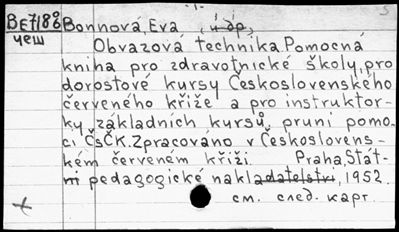 БЕ7/188 Bonnová, Eva и др.
чеш
Obvazová technika. Pomocná
kniha pro zdravotnické školy, pro
dorostové kursy Československého
červeného kříže a pro instruktor-
ky základních kursů pruni pomo-
ci ČsČK. Zpracováno v Českoslovens-
kém červeném kříži. Praha, Stát-
ni pedagogické nakladatelstvi, 1952.
см. след. карт.